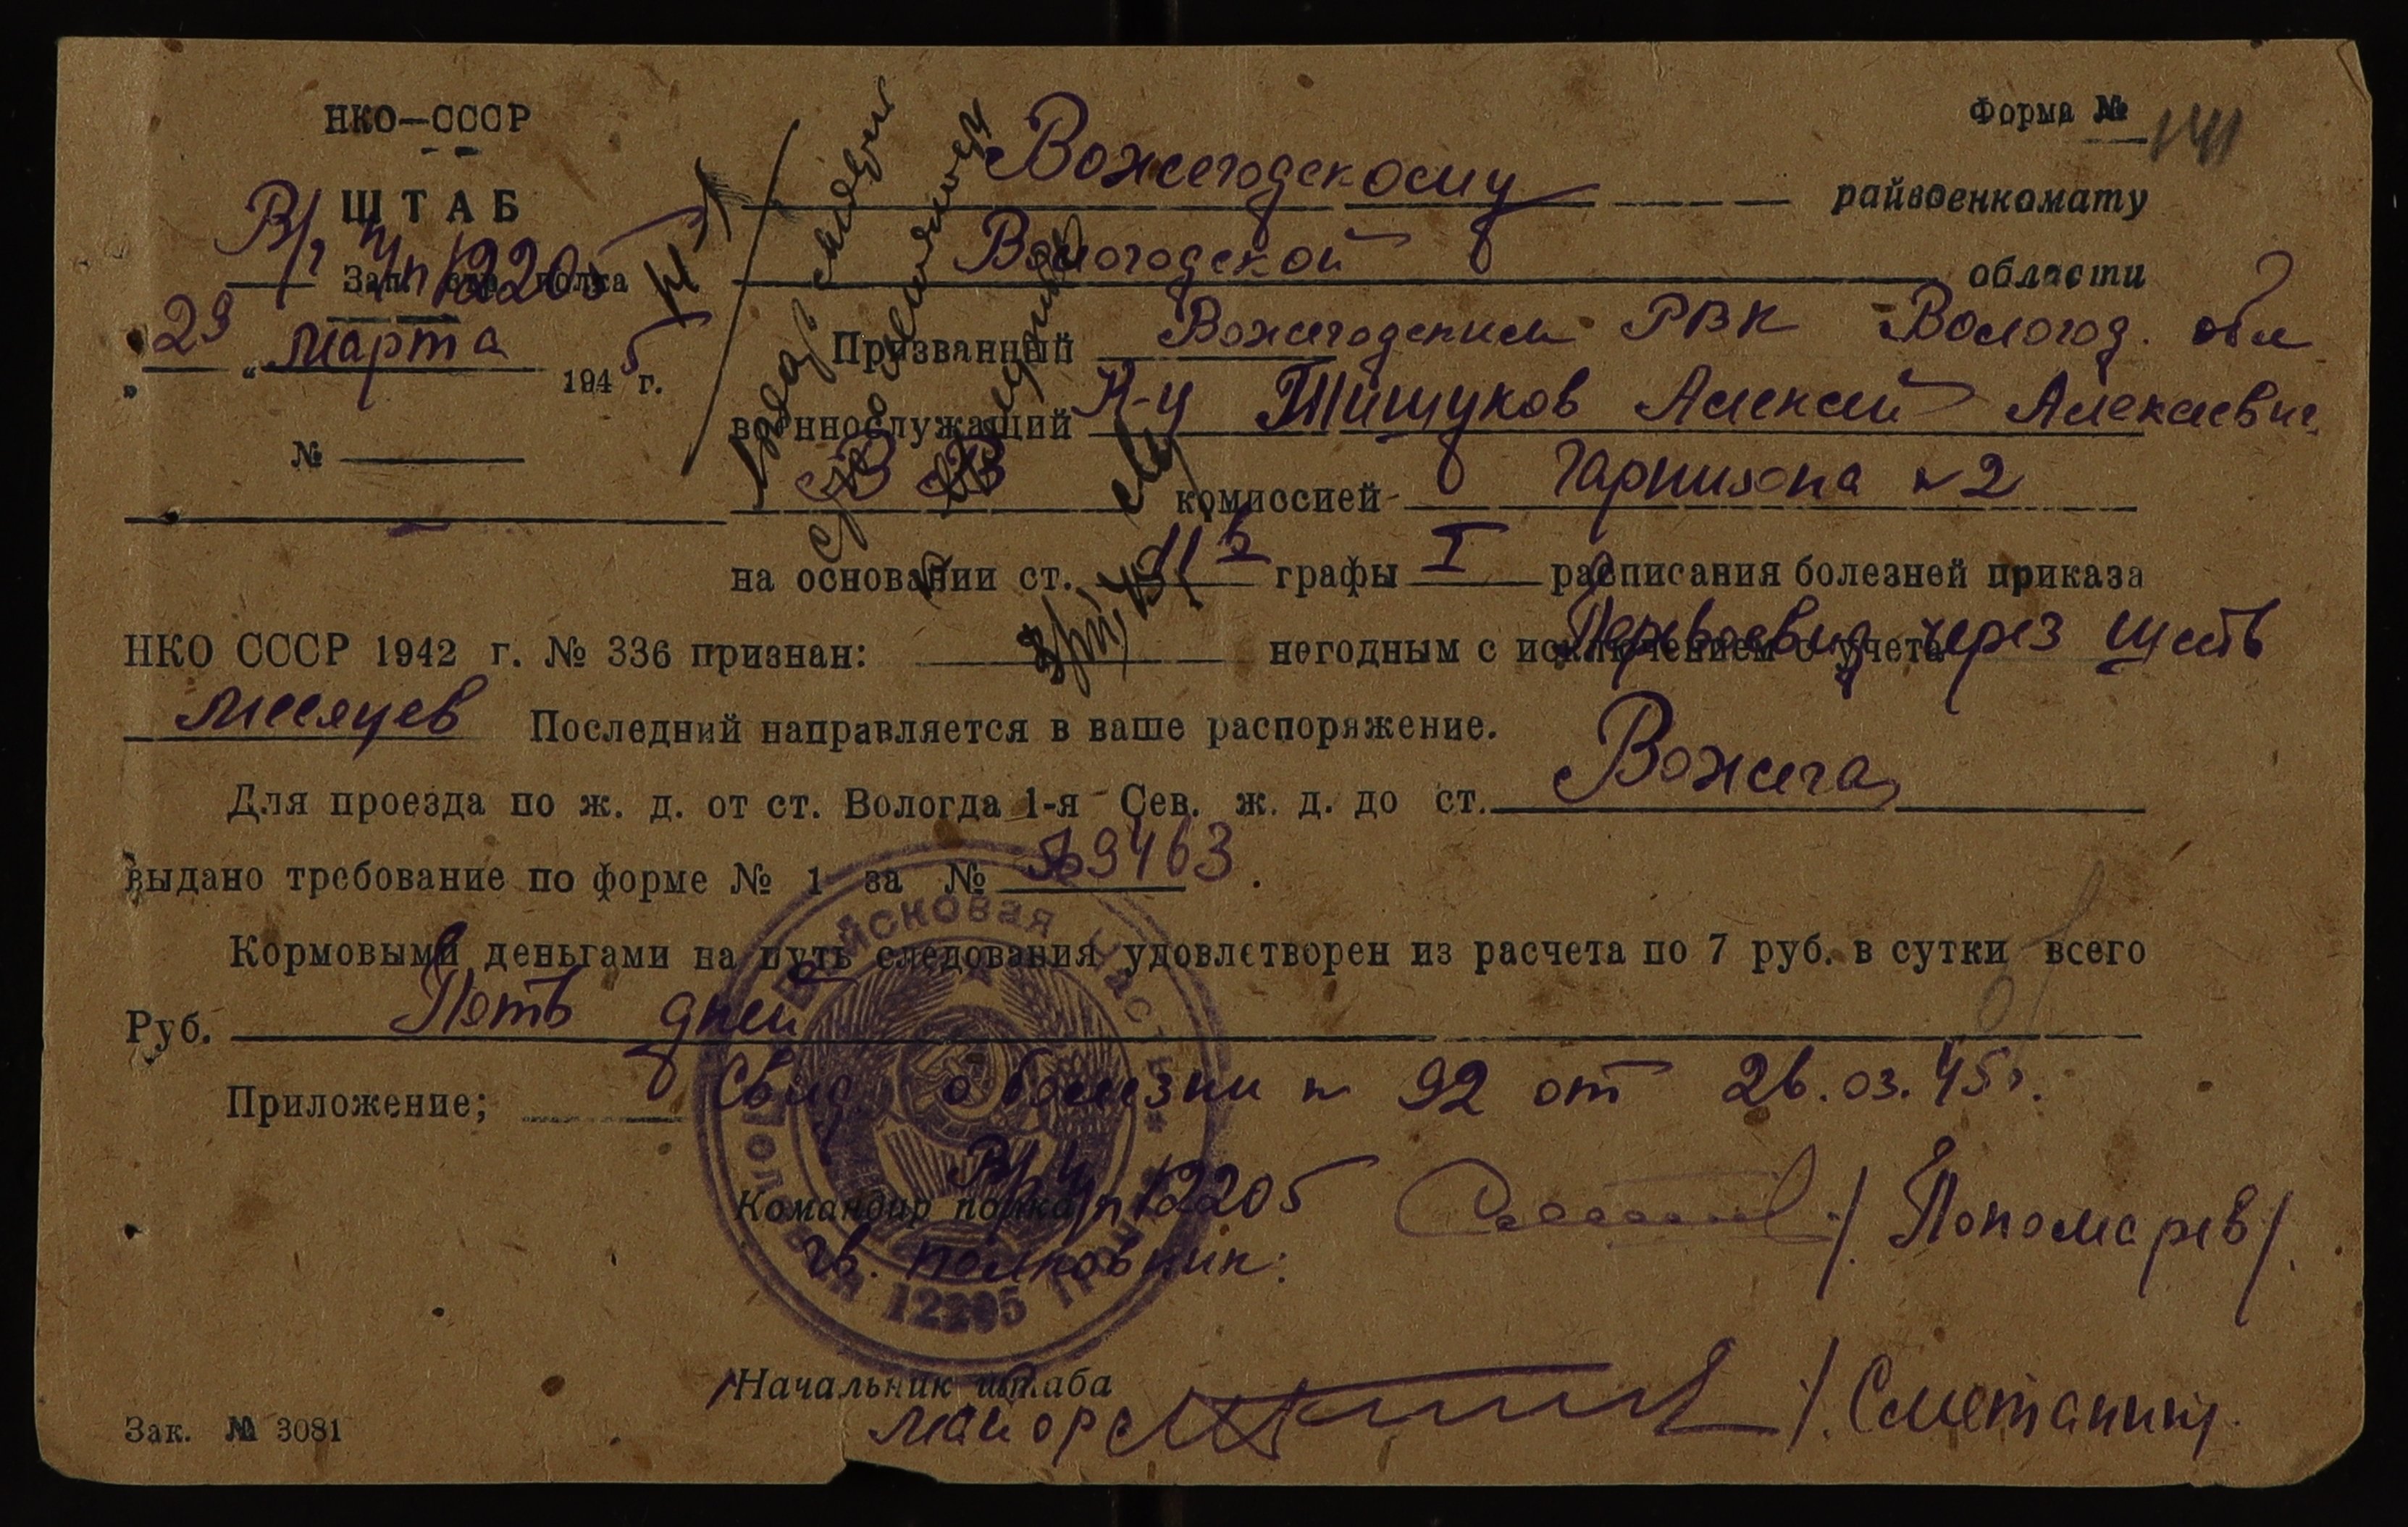 НКО—СССР
Форма № 141
ШТАБ
В/ч п/п 12205
Зап. стр. полка
„29“ марта 1945 г.
№
Вожегодскому райвоенкомату
Вологодской области
Призванный Вожегодским РВК Вологод. обл
военнослужащий к-ц Тишуков Алексей Алексеевич
комиссией гарнизона №2
на основании ст. 11б графы I расписания болезней приказа
НКО СССР 1942 г. № 336 признан: негодным с исключением с учета Переосвид через шесть
месяцев Последний направляется в ваше распоряжение.
Для проезда по ж. д. от ст. Вологда 1-я Сев. ж. д. до ст. Вожега
выдано требование по форме № 1 за № 9463.
Кормовыми деньгами на путь следования удовлетворен из расчета по 7 руб. в сутки всего
Руб. Пять дней
Приложение; Свид. о болезни № 92 от 26.03.45г.
Командир полка В/ч п/п 12205 /Пономарев/.
гв. полковник:
Войсковая часть
Полевая почта 12205
Начальник штаба
майор /Сметанин/.
Зак. № 3081